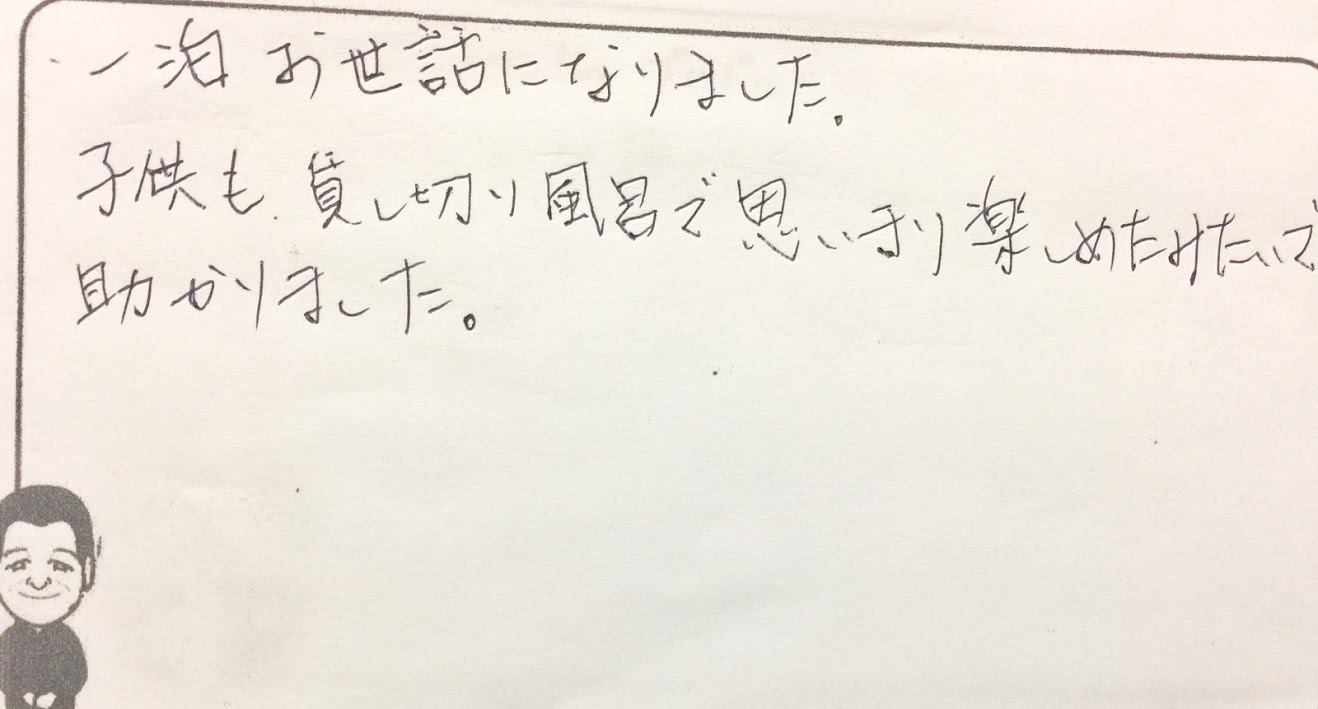 一泊 お世話になりました。
子供も、貸し切り風呂で思いきり楽しめたみたいで
助かりました。